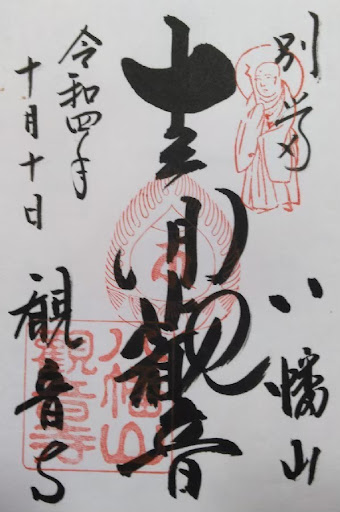 別尊
八幡山
十一面観音
令和四年
十月十日
観音寺
八幡山
觀音寺